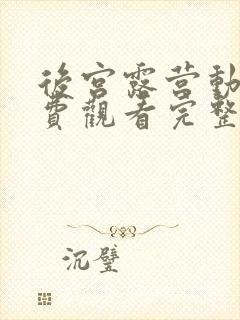 後宮露营動
費觀看完整
沉璧